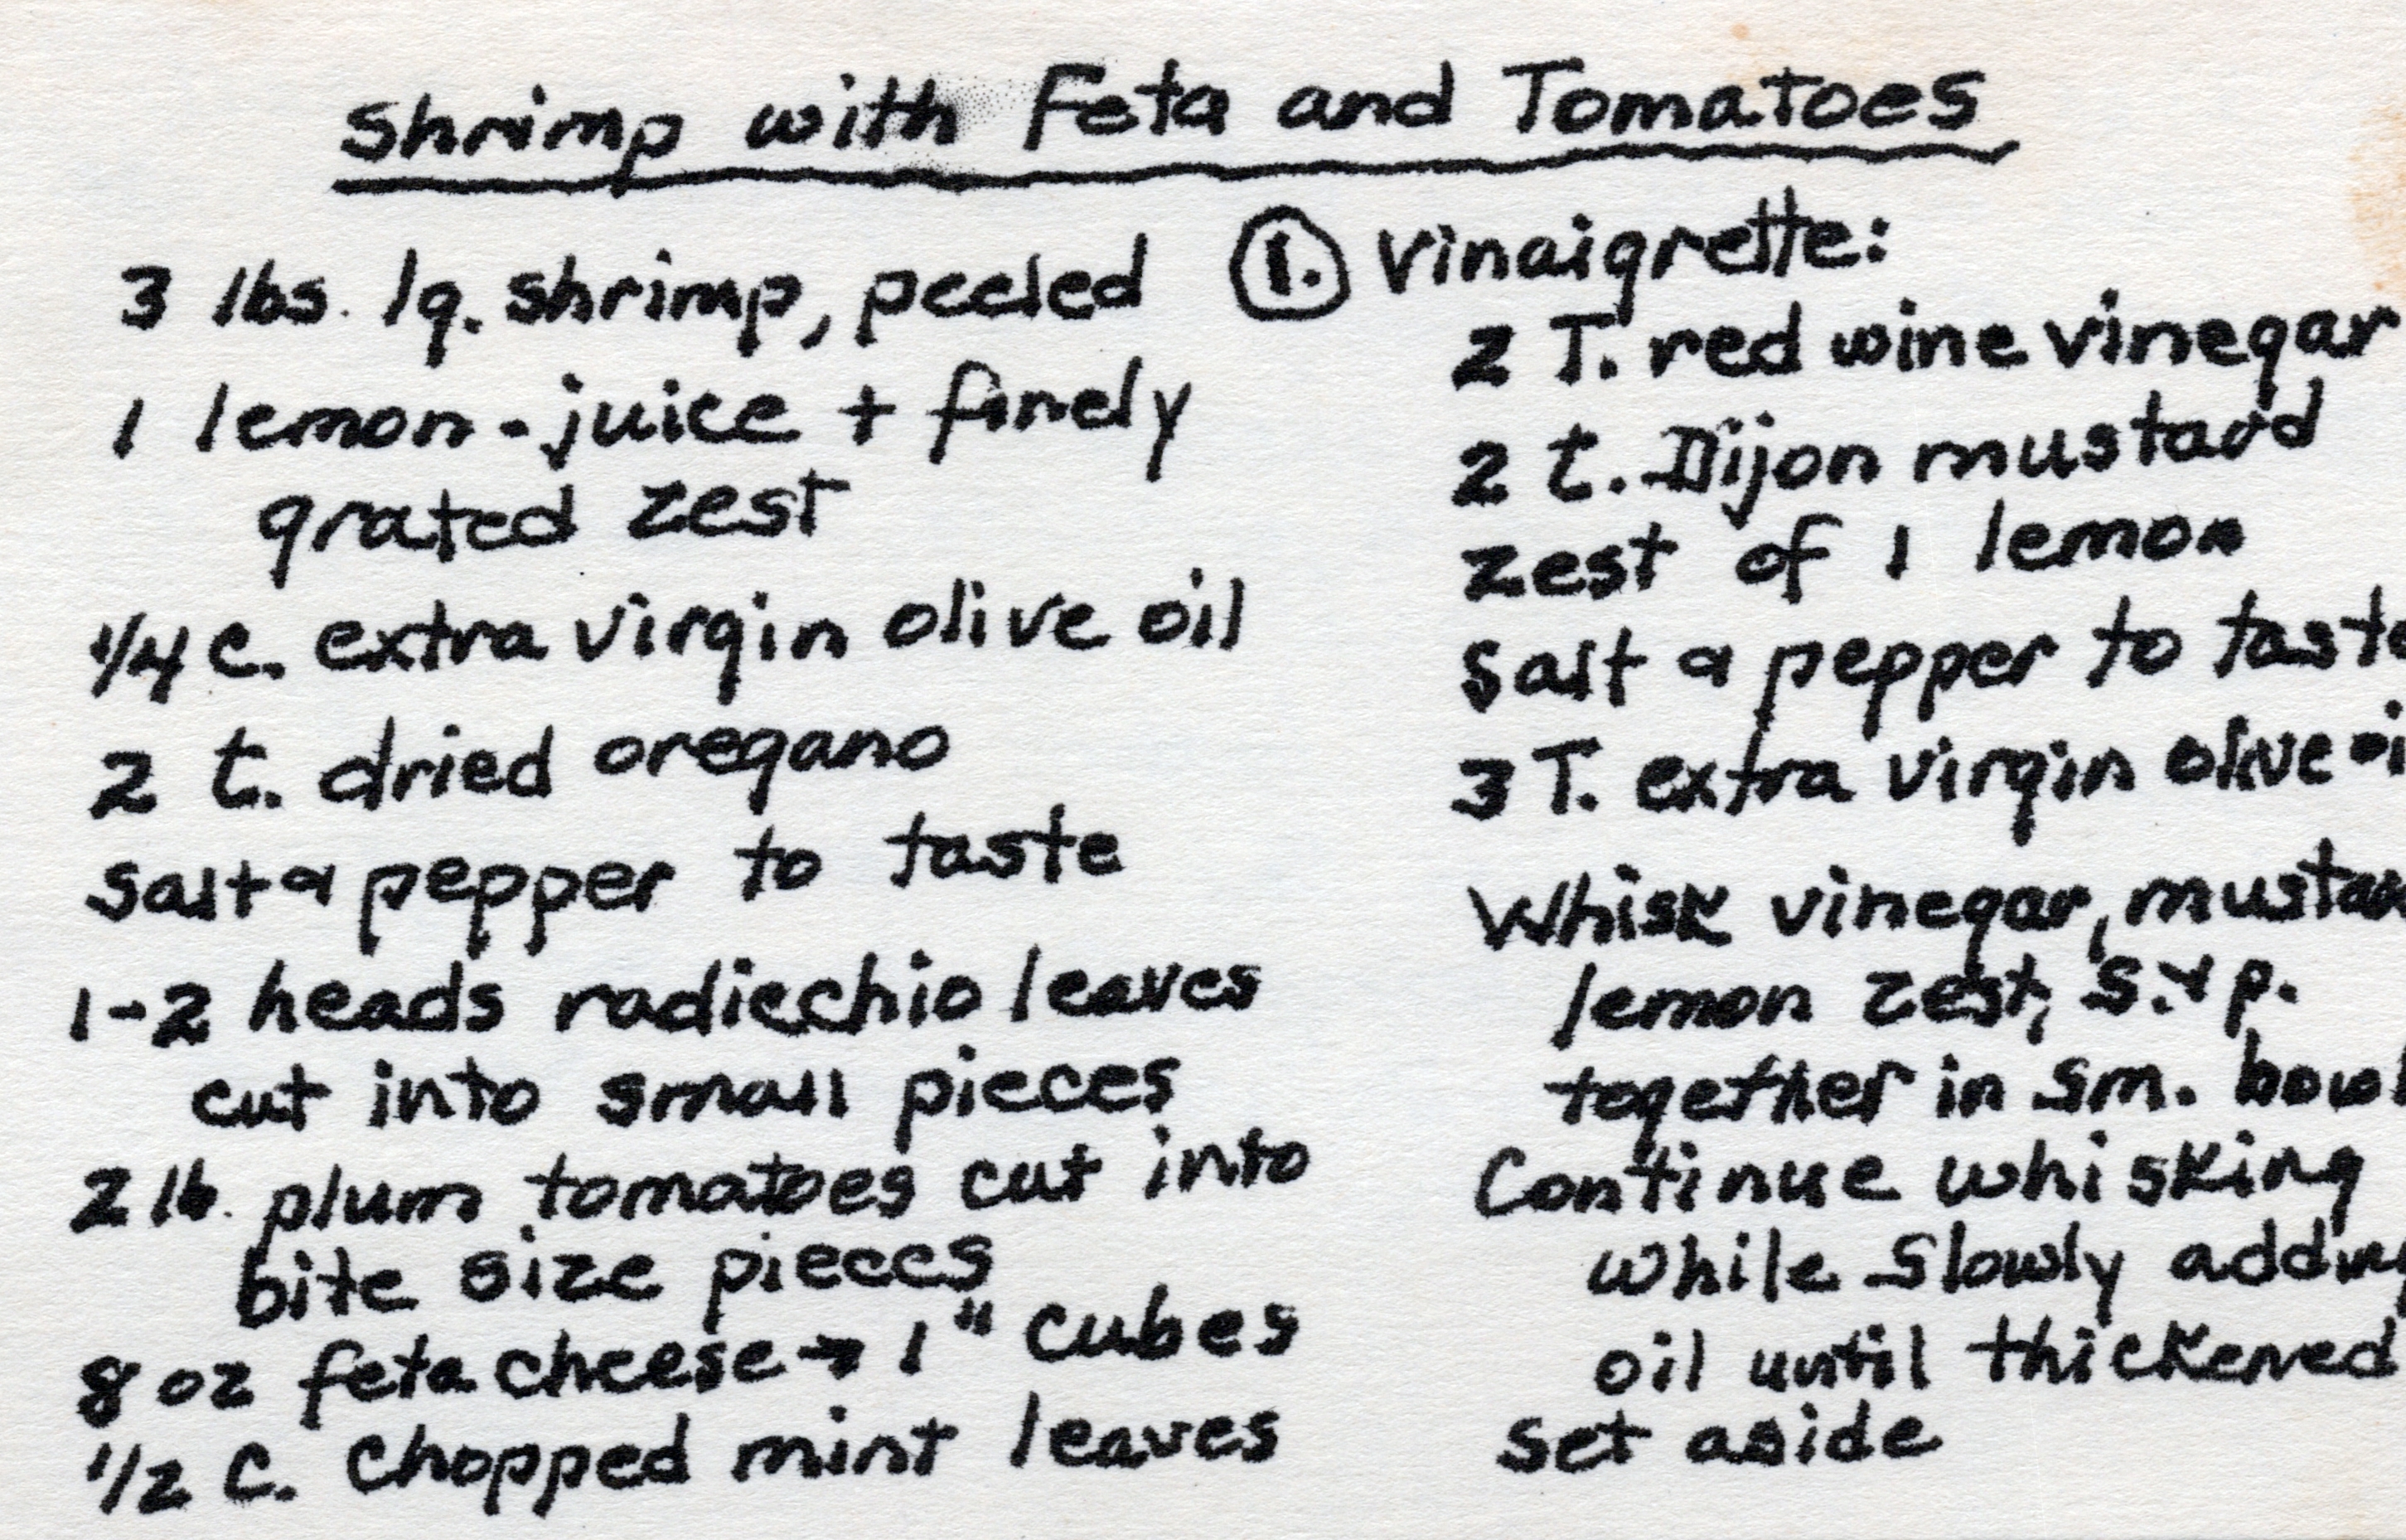 Shrimp with Feta and Tomatoes
3 lbs. lg. shrimp, peeled
1 lemon - juice + finely
grated zest
1/4 c. extra virgin olive oil
2 t. dried oregano
Salt & pepper to taste
1-2 heads radicchio leaves
cut into small pieces
2 lb. plum tomatoes cut into
bite size pieces
8 oz feta cheese → 1" cubes
1/2 C. Chopped mint leaves
1. Vinaigrette:
2 T. red wine vinegar
2 t. Dijon mustard
Zest of 1 lemon
Salt & pepper to taste
3 T. extra virgin olive oi
Whisk vinegar, mustar
lemon zest, S. & p.
together in sm. bowl
Continue whisking
while Slowly adding
oil until thickened
Set aside